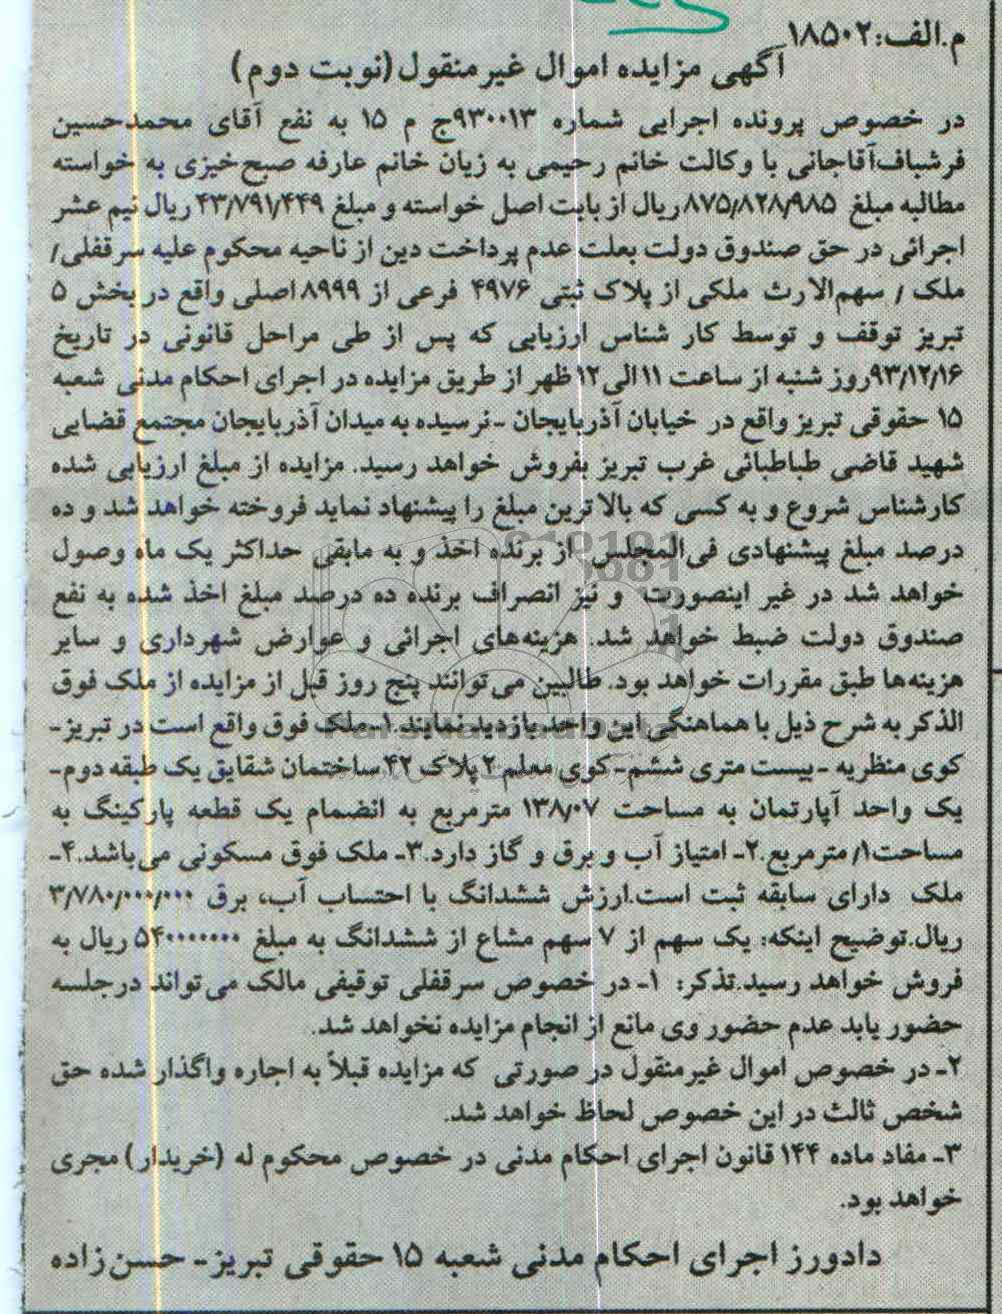 م.الف:۱۸۵۰۲
آگهی مزایده اموال غیرمنقول(نوبت دوم)
در خصوص پرونده اجرایی شماره ۹۳۰۰۱۳ج م ۱۵ به نفع آقای محمدحسین
فرشباف‌آقاجانی با وکالت خانم رحیمی به زیان خانم عارفه صبح‌خیزی به خواسته
مطالبه مبلغ ۸۷۵/۸۲۸/۹۸۵ریال از بابت اصل خواسته و مبلغ ۴۳/۷۹۱/۴۴۹ ریال نیم عشر
اجرائی در حق صندوق دولت بعلت عدم پرداخت دین از ناحیه محکوم علیه سرقفلی/
ملک / سهم‌الارث ملکی از پلاک ثبتی ۴۹۷۶ فرعی از ۸۹۹۹اصلی واقع در بخش ۵
تبریز توقف و توسط کار شناس ارزیابی که پس از طی مراحل قانونی در تاریخ
۹۳/۱۲/۱۶روز شنبه از ساعت ۱۱الی۱۲ظهر از طریق مزایده در اجرای احکام مدنی شعبه
۱۵ حقوقی تبریز واقع در خیابان آذربایجان -نرسیده به میدان آذربایجان مجتمع قضایی
شهید قاضی طباطبائی غرب تبریز بفروش خواهد رسید. مزایده از مبلغ ارزیابی شده
کارشناس شروع و به کسی که بالاترین مبلغ را پیشنهاد نماید فروخته خواهد شد و ده
درصد مبلغ پیشنهادی فی‌المجلس از برنده اخذ و به مابقی حداکثر یک ماه وصول
خواهد شد در غیر اینصورت و نیز انصراف برنده ده درصد مبلغ اخذ شده به نفع
صندوق دولت ضبط خواهد شد. هزینه‌های اجرائی و عوارض شهرداری و سایر
هزینه‌ها طبق مقررات خواهد بود. طالبین می‌توانند پنج روز قبل از مزایده از ملک فوق
الذکر به شرح ذیل با هماهنگی این واحد بازدید نمایند.۱-ملک فوق واقع است در تبریز-
کوی منظریه -بیست متری ششم-کوی معلم ۲پلاک ۴۲ساختمان شقایق یک طبقه دوم-
یک واحد آپارتمان به مساحت ۱۳۸/۰۷ مترمربع به انضمام یک قطعه پارکینگ به
مساحت۱/ مترمربع.۲- امتیاز آب و برق و گاز دارد.۳- ملک فوق مسکونی می‌باشد.۴-
ملک دارای سابقه ثبت است.ارزش ششدانگ با احتساب آب، برق ۳/۷۸۰/۰۰۰/۰۰۰
ریال.توضیح اینکه: یک سهم از ۷ سهم مشاع از ششدانگ به مبلغ ۵۴۰۰۰۰۰۰۰ ریال به
فروش خواهد رسید.تذکر: ۱-در خصوص سرقفلی توقیفی مالک می‌تواند درجلسه
حضور یابد عدم حضور وی مانع از انجام مزایده نخواهد شد.
۲-در خصوص اموال غیرمنقول در صورتی که مزایده قبلاً به اجاره واگذار شده حق
شخص ثالث در این خصوص لحاظ خواهد شد.
۳- مفاد ماده ۱۴۴ قانون اجرای احکام مدنی در خصوص محکوم له (خریدار) مجری
خواهد بود.
دادورز اجرای احکام مدنی شعبه ۱۵ حقوقی تبریز- حسن‌زاده